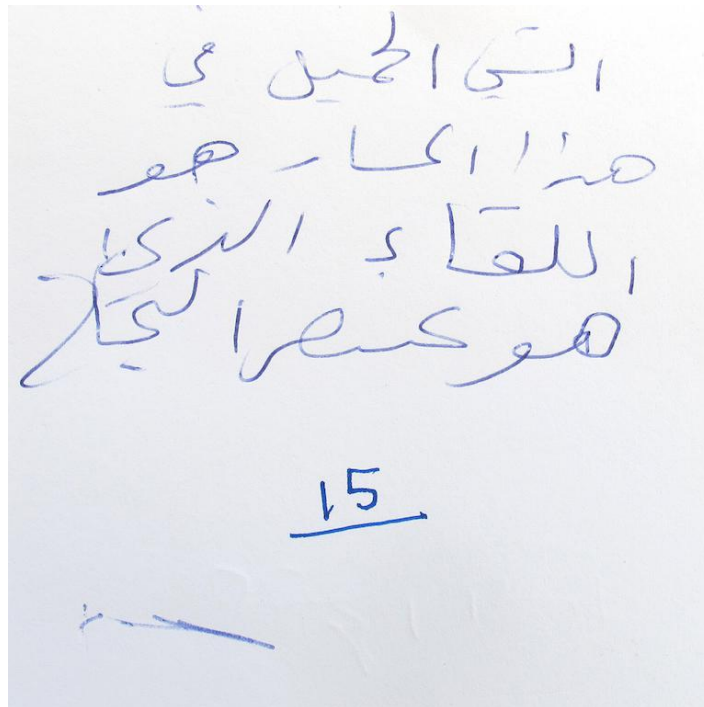 الشي الجميل في
هذا المسار هو
اللقاء الذي
هو عنصر النجاح
15